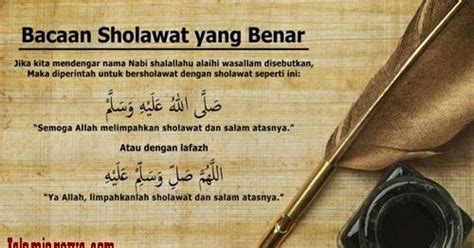 Bacaan Sholawat yang Benar
Jika kita mendengar nama Nabi shalallahu alaihi wasallam disebutkan,
Maka diperintah untuk bersholawat dengan sholawat seperti ini:
صَلَّى اللهُ عَلَيْهِ وَسَلَّمَ
“Semoga Allah melimpahkan sholawat dan salam atasnya.”
Atau dengan lafazh
اللَّهُمَّ صَلِّ وَسَلِّمْ عَلَيْهِ
“Ya Allah, limpahkanlah sholawat dan salam atasnya.”